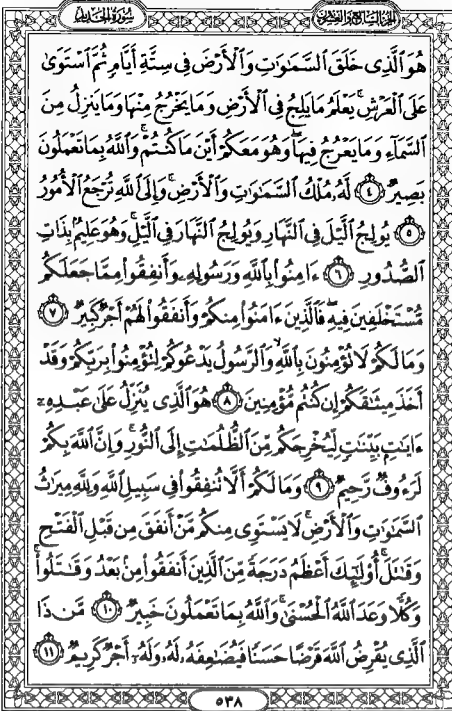 سُورَةُ الحَدِيد
الجزء السابع والعشرون
هُوَ ٱلَّذِى خَلَقَ ٱلسَّمَٰوَٰتِ وَٱلۡأَرۡضَ فِى سِتَّةِ أَيَّامٖ ثُمَّ ٱسۡتَوَىٰ
عَلَى ٱلۡعَرۡشِۖ يَعۡلَمُ مَا يَلِجُ فِى ٱلۡأَرۡضِ وَمَا يَخۡرُجُ مِنۡهَا وَمَا يَنزِلُ مِنَ
ٱلسَّمَآءِ وَمَا يَعۡرُجُ فِيهَاۖ وَهُوَ مَعَكُمۡ أَيۡنَ مَا كُنتُمۡۚ وَٱللَّهُ بِمَا تَعۡمَلُونَ
بَصِيرٞ ٤ لَّهُۥ مُلۡكُ ٱلسَّمَٰوَٰتِ وَٱلۡأَرۡضِۚ وَإِلَى ٱللَّهِ تُرۡجَعُ ٱلۡأُمُورُ
٥ يُولِجُ ٱلَّيۡلَ فِى ٱلنَّهَارِ وَيُولِجُ ٱلنَّهَارَ فِى ٱلَّيۡلِۚ وَهُوَ عَلِيمُۢ بِذَاتِ
ٱلصُّدُورِ ٦ ءَامِنُوا۟ بِٱللَّهِ وَرَسُولِهِۦ وَأَنفِقُوا۟ مِمَّا جَعَلَكُم
مُّسۡتَخۡلَفِينَ فِيهِۖ فَٱلَّذِينَ ءَامَنُوا۟ مِنكُمۡ وَأَنفَقُوا۟ لَهُمۡ أَجۡرٞ كَبِيرٞ ٧
وَمَا لَكُمۡ لَا تُؤۡمِنُونَ بِٱللَّهِ وَٱلرَّسُولُ يَدۡعُوكُمۡ لِتُؤۡمِنُوا۟ بِرَبِّكُمۡ وَقَدۡ
أَخَذَ مِيثَٰقَكُمۡ إِن كُنتُم مُّؤۡمِنِينَ ٨ هُوَ ٱلَّذِى يُنَزِّلُ عَلَىٰ عَبۡدِهِۦٓ
ءَايَٰتِۭ بَيِّنَٰتٖ لِّيُخۡرِجَكُم مِّنَ ٱلظُّلُمَٰتِ إِلَى ٱلنُّورِۚ وَإِنَّ ٱللَّهَ بِكُمۡ
لَرَءُوفٞ رَّحِيمٞ ٩ وَمَا لَكُمۡ أَلَّا تُنفِقُوا۟ فِى سَبِيلِ ٱللَّهِ وَلِلَّهِ مِيرَٰثُ
ٱلسَّمَٰوَٰتِ وَٱلۡأَرۡضِۚ لَا يَسۡتَوِى مِنكُم مَّنۡ أَنفَقَ مِن قَبۡلِ ٱلۡفَتۡحِ
وَقَٰتَلَۚ أُو۟لَٰٓئِكَ أَعۡظَمُ دَرَجَةٗ مِّنَ ٱلَّذِينَ أَنفَقُوا۟ مِنۢ بَعۡدُ وَقَٰتَلُوا۟ۚ
وَكُلّٗا وَعَدَ ٱللَّهُ ٱلۡحُسۡنَىٰۚ وَٱللَّهُ بِمَا تَعۡمَلُونَ خَبِيرٞ ١٠ مَّن ذَا
ٱلَّذِى يُقۡرِضُ ٱللَّهَ قَرۡضًا حَسَنٗا فَيُضَٰعِفَهُۥ لَهُۥ وَلَهُۥٓ أَجۡرٞ كَرِيمٞ ١١
٥٣٨